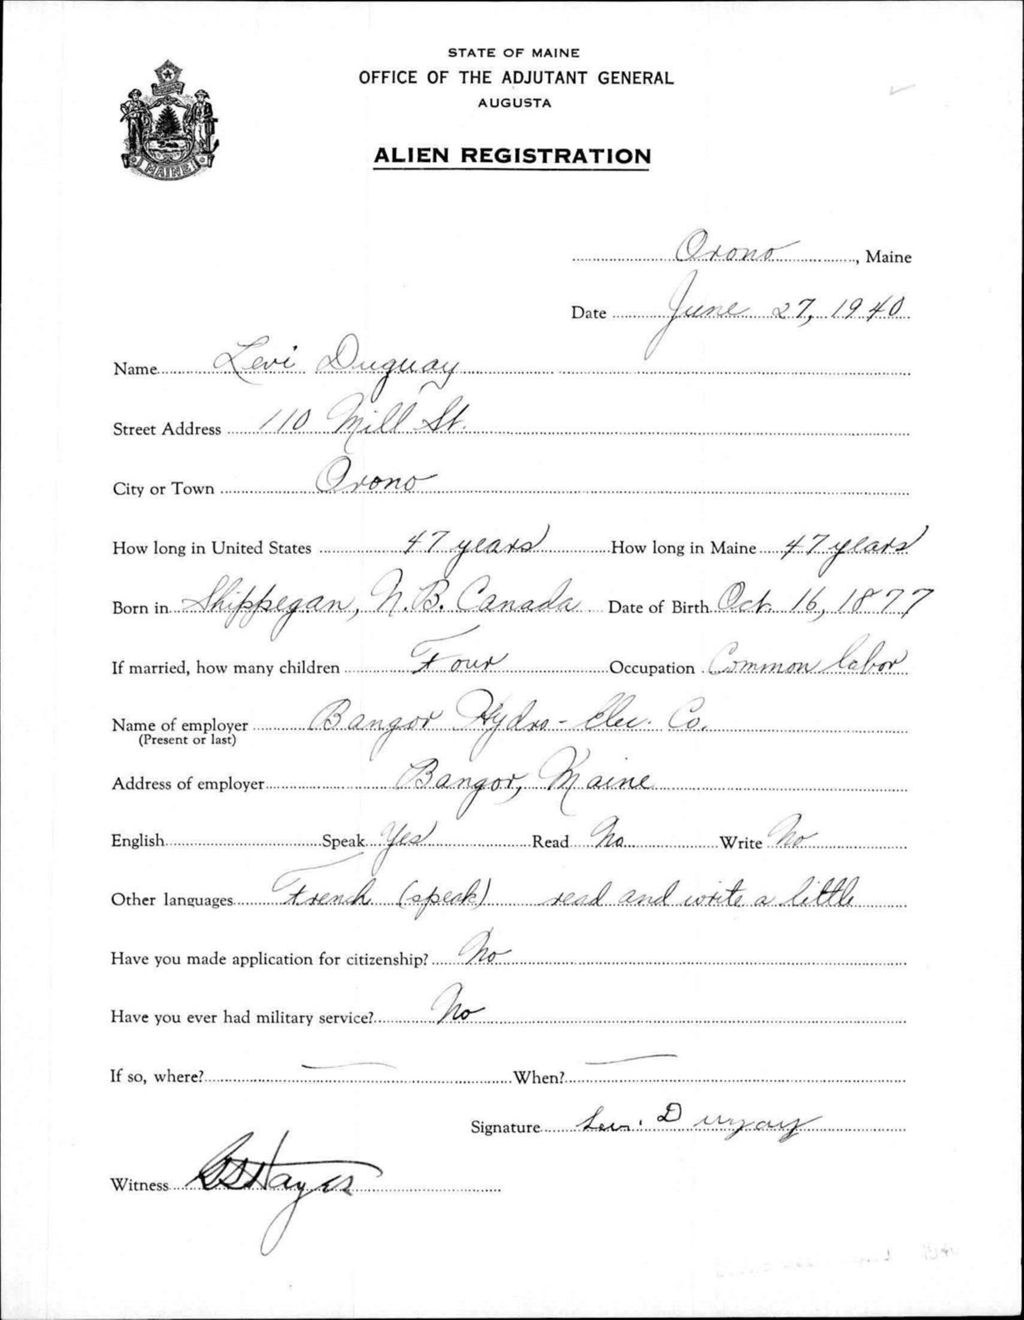 STATE OF MAINE
OFFICE OF THE ADJUTANT GENERAL
AUGUSTA
ALIEN REGISTRATION
MAINE
Orono, Maine
Date June 27, 1940
Name Levi Duguay
Street Address 110 Mill St.
City or Town Orono
How long in United States 47 years How long in Maine 47 years
Born in Shippegan, N.B. Canada Date of Birth Oct. 16, 1877
If married, how many children Four Occupation Common labor
Name of employer Bangor Hydro-Elec. Co.
(Present or last)
Address of employer Bangor, Maine
English Speak Yes Read No Write No
Other languages French (speak) read and write a little
Have you made application for citizenship? No
Have you ever had military service? No
If so, where? — When? —
Signature Levi Duguay
Witness Hayes